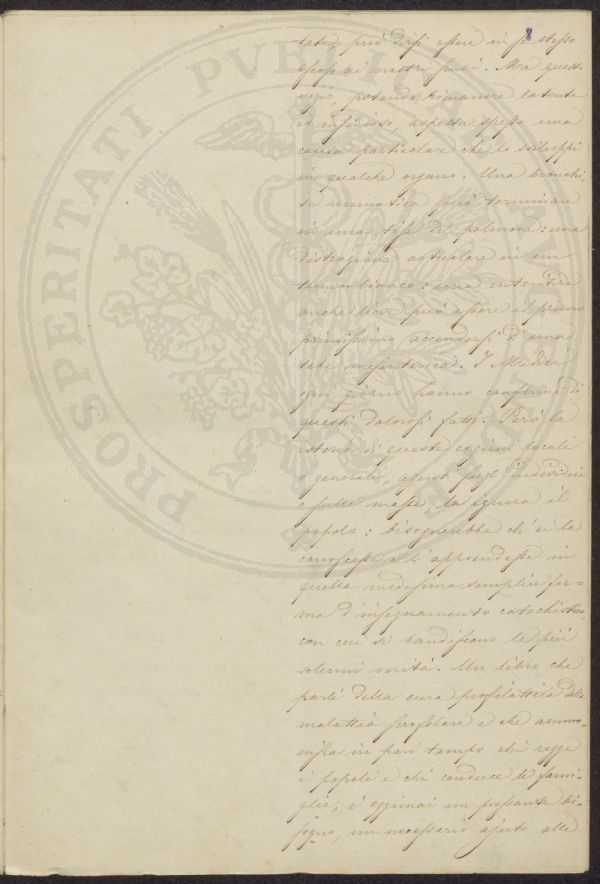 8
tato, può dirsi essere in se stesso
ai nostri sensi. Ma questo
potendo rimanere latente
ed insidioso, aspetta spesso una
causa particolare che lo sviluppi
in qualche organo. Una bronchi-
te reumatica può terminare
in una tisi del polmone: una
distrazione articolare in un
tumor bianco: una enteritide
anche lieve può essere il primo
primissimo accendersi di una
tabe mesenterica. I Medici
ogni giorno hanno conferma di
questi dolorosi fatti. Però la
istoria di queste cagioni locali
o generali, agenti sugl' individui
o sulle masse, la ignora il
popolo: bisognerebbe ch' ei la
conoscesse e l' apprendesse in
quella medesima semplice for-
ma d' insegnamento catechistico,
con cui si bandiscono le più
solenni verità. Un libro che
parli della cura profilattica della
malattia scrofolare e che ammo-
nisca in pari tempo chi regge
i popoli e chi conduce le fami-
glie, è oggimai un pressante bi-
sogno, un necessario ajuto alle
PROSPERITATI PVBLICAE